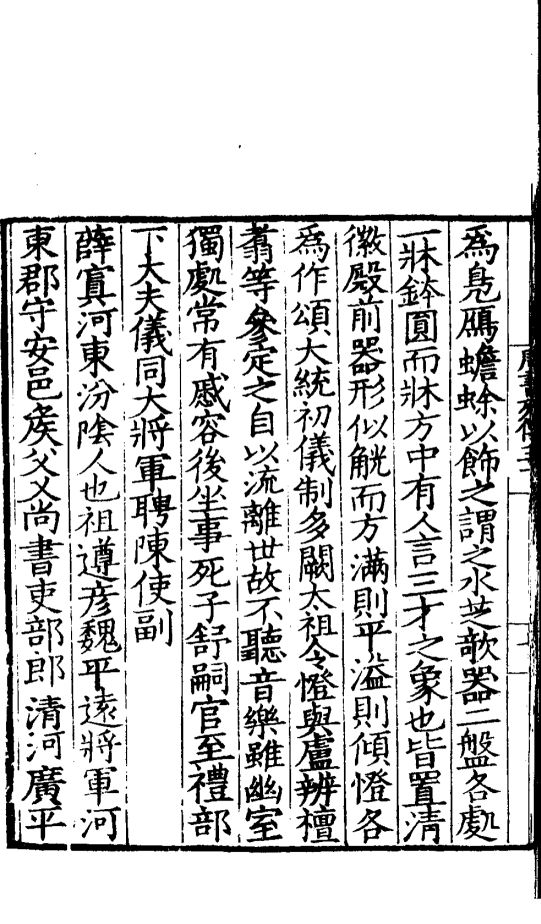 為鳬鴈蟾蜍以飾之謂之水芝欹器二盤各處
一牀鉢圓而牀方中有人言三才之象也皆置清
徽殿前器形似觥而方滿則平溢則傾憕各
爲作頌大統初儀制多闕太祖令憕與盧辨檀
翥等參定之自以流離世故不聽音樂雖幽室
獨處常有戚容後坐事死子舒嗣官至禮部
下大夫儀同大將軍聘陳使副
薛寘河東汾陰人也祖遵彦魏平遠將軍河
東郡守安邑侯父乂尚書吏部郎清河廣平